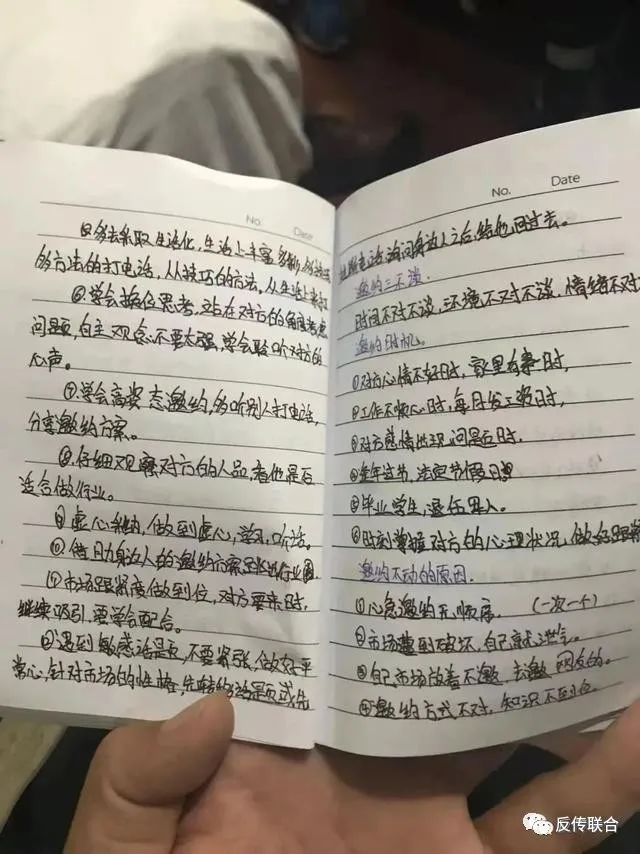 No. Date
多方法的打电话,从技巧的方法。从生活上来
⑥学会换位思考,站在对方的角度考虑
问题,自主观念不要太强,学会聆听对方的
心声。
⑦学会高姿态邀约,多听别人打电话,
分享邀约方案。
⑧仔细观察对方的人品,看他是否
适合做行业。
⑨虚心,做到虚心,学习,听话。
⑩借助身边人的邀约方案
⑪市场跟紧度做到位,对方要来时,
继续吸引,要学会配合。
⑫遇到敏感话题,不要紧张,做好平
常心,针对市场的性格,先
No. Date
电话询问身边人之后,给他回过去。
邀约三不谈.
时间不对不谈,环境不对不谈,情绪不对
邀约时机。
①对方心情不好时,家里有事时,
②工作不顺心时,每月发工资时,
③对方感情出现问题时.
④逢年过节,法定节假日
⑤毕业学生,退伍军人。
⑥时刻掌握对方的心理状况,做好跟紧
邀约不动的原因.
①心急邀约无顺序. (一次一个)
②市场遭到破坏,自己高
③自己市场放着不邀,去邀网友的。
④邀约方式不对,知识不到位。
反传联合